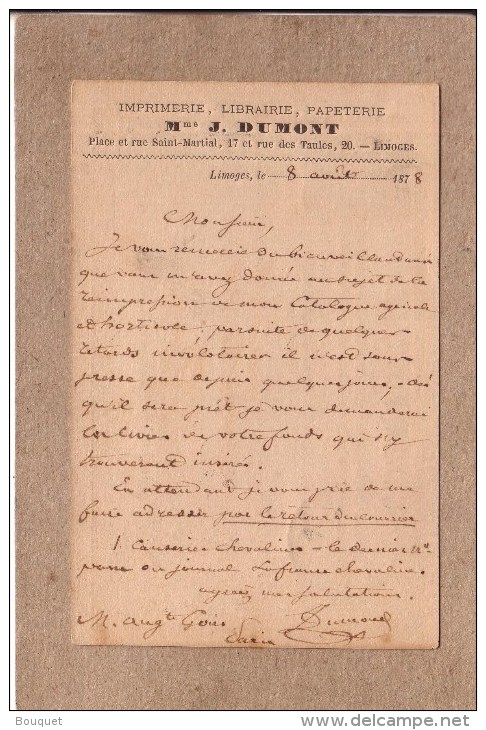 IMPRIMERIE, LIBRAIRIE, PAPETERIE
Mme J. DUMONT
Place et rue Saint-Martial, 17 et rue des Taules, 20. — LIMOGES.
Limoges, le 8 août 1878
Monsieur,
Je vous remercie du bienveillant
que vous m'avez donné au sujet de la
réimpression de mon Catalogue agricole
et horticole, par suite de quelques
retards involotaires il n'est sous
presse que depuis quelques jours, dès
qu'il sera prêt je vous demanderai
les livres de votre fonds qui s'y
trouveront insérés.
En attendant je vous prie de me
faire adresser par le retour du courrier
1 Causerie Chevaline - le dernier No.
paru du journal La france chevaline.
agréez mes salutations.
M. Augte Goin Dumont
Paris
© Bouquet
http://www.delcampe.net